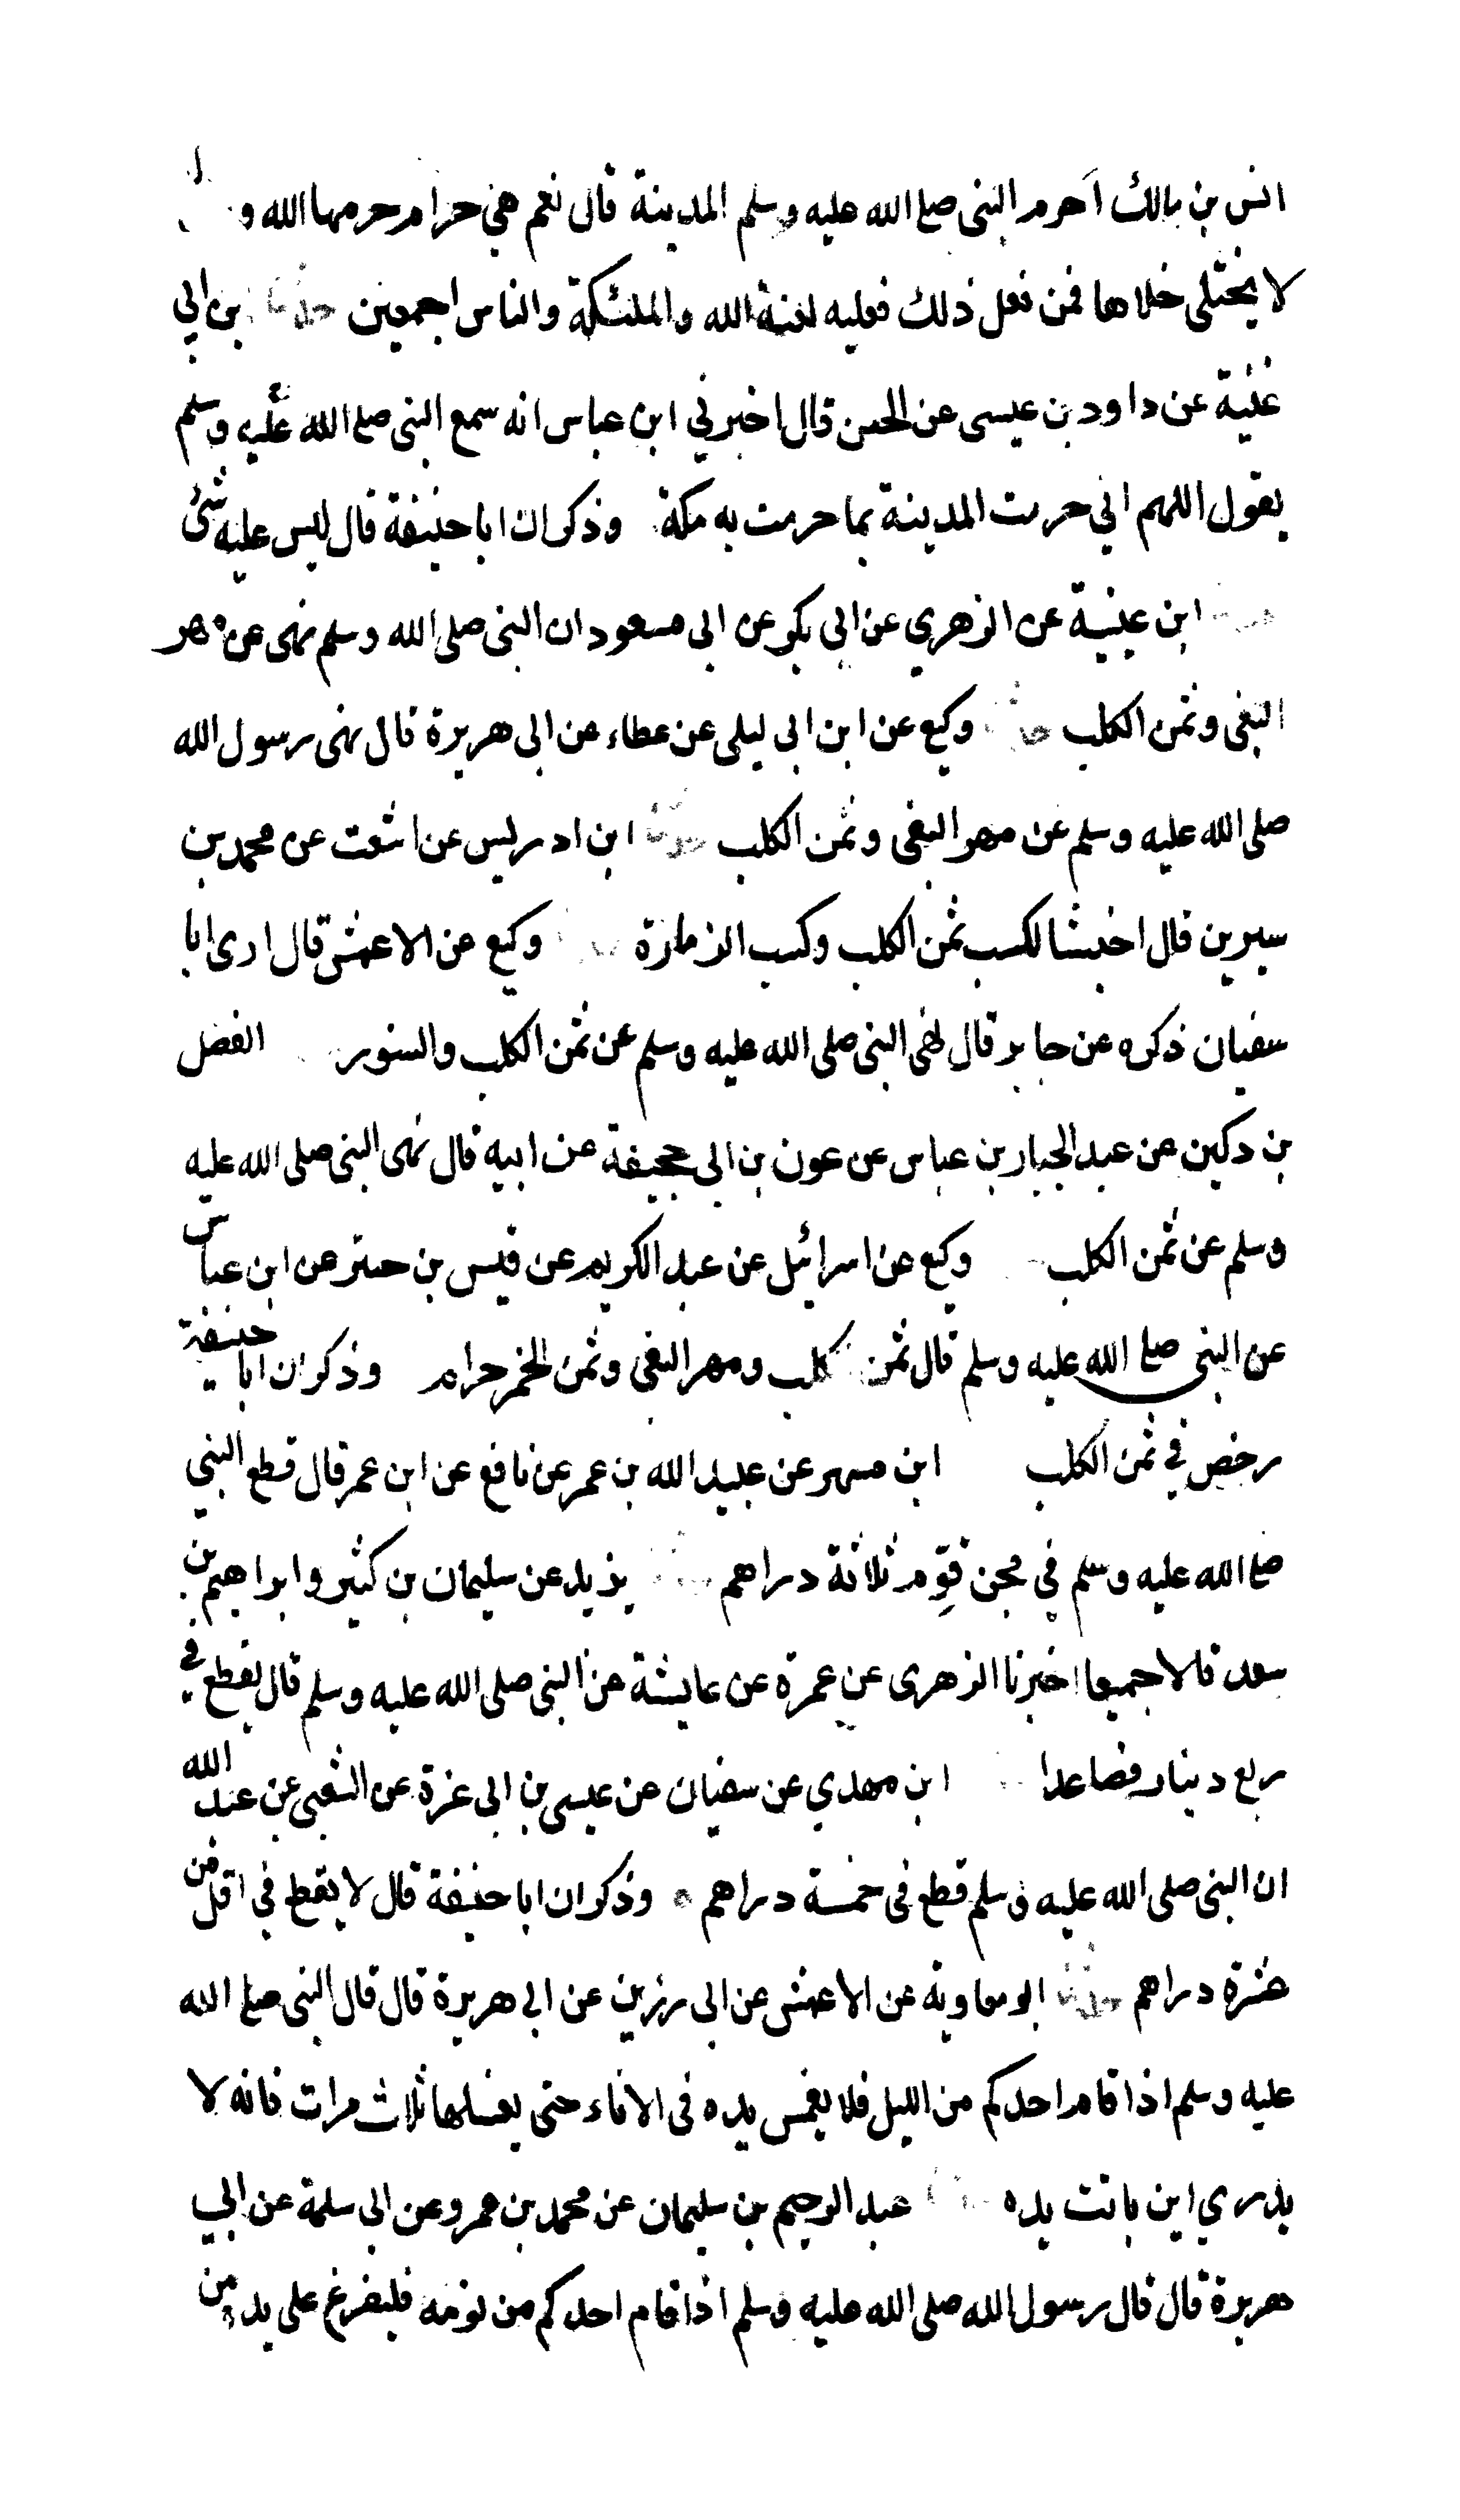 انس بن مالك أحرم النبى صلع الله عليه وسلم المدينة قال نعم هي حرام حرمها الله و
لا يختلى خلاها فمن فعل ذلك فعليه لعنة الله والملئكة والناس اجمعين حدثنا بن ابي
غنية عن داود بن عيسى عن الحسن قال اخبرني ابن عباس انه سمع النبى صلع الله عليه وسلم
يقول اللهم اني حرمت المدينة بما حرمت به مكة وذكر ان ابا حنيفة قال ليس عليه شئ
ابن عيينة عن الزهري عن ابي بكر عن ابى مسعود ان النبى صلى الله وسلم نهى عن مهر
البغى وثمن الكلب حدثنا وكيع عن ابن ابى ليلى عن عطاء عن ابى هريرة قال نهى رسول الله
صلى الله عليه وسلم عن مهر البغى وثمن الكلب حدثنا ابن ادريس عن اشعث عن محمد بن
سيرين قال اخبث الكسب ثمن الكلب وكسب الزمارة وكيع عن الاعمش قال ارى ابا
سفيان ذكره عن جابر قال نهى النبى صلى الله عليه وسلم عن ثمن الكلب والسنور الفضل
بن دكين عن عبد الجبار بن عباس عن عون بن ابى جحيفة عن ابيه قال نهى النبى صلى الله عليه
وسلم عن ثمن الكلب وكيع عن اسرائيل عن عبد الكريم عن قيس بن حبتر عن ابن عباس
عن النبى صلع الله عليه وسلم قال ثمن كلب ومهر البغى وثمن الخمر حرام وذكر ان ابا حنيفة
رخص في ثمن الكلب ابن مسهر عن عبيد الله بن عمر عن نافع عن ابن عمر قال قطع النبي
صلع الله عليه وسلم في مجن قوم ثلاثة دراهم يزيد عن سليمان بن كثير وابراهيم بن
سعد قالا جميعا اخبرنا الزهرى عن عمرة عن عايشة عن النبى صلى الله عليه وسلم قال يقطع في
ربع دينار فصاعدا ابن مهدي عن سفيان عن عيسى بن ابى عزة عن الشعبى عن عبد الله
ان النبى صلى الله عليه وسلم قطع فى خمسة دراهم ٥ وذكر ان ابا حنيفة قال لا يقطع في اقل من
عشرة دراهم حدثنا ابو معاوية عن الاعمش عن ابى رزين عن ابي هريرة قال قال النبى صلع الله
عليه وسلم اذا قام احدكم من الليل فلا يغمس يده فى الاناء حتى يغسلها ثلاث مرات فانه لا
يدري اين باتت يده عبد الرحيم بن سليمان عن محمد بن عمرو عن ابى سلمة عن ابي
هريرة قال قال رسول الله صلى الله عليه وسلم اذا قام احدكم من نومه فليفرغ على يده من